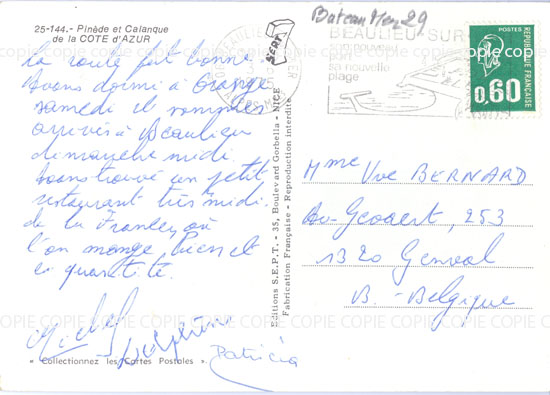 25-144.- Pinède et Calanque
de la COTE d'AZUR
La route fut bonne.
Avons dormi à Orange
samedi et sommes
arrivés à Beaulieu
dimanche midi.
Avons trouvé un petit
restaurant très midi.
de la France, où
l'on mange bien et
en quantité.
Michel
Patricia
« Collectionnez les Cartes Postales »
Editions S.E.P.T. - 35, Boulevard Gorbella - NICE
Fabrication Française - Reproduction interdite
SEPT
Bateau Men 29
BEAULIEU-SUR
son nouveau
port
sa nouvelle
plage
POSTES
REPUBLIQUE FRANÇAISE
0,60
Mme Vve BERNARD
Av-Gevaert, 253
1320 Genval
B.-Belgique
COPIE COPIE COPIE COPIE COPIE COPIE